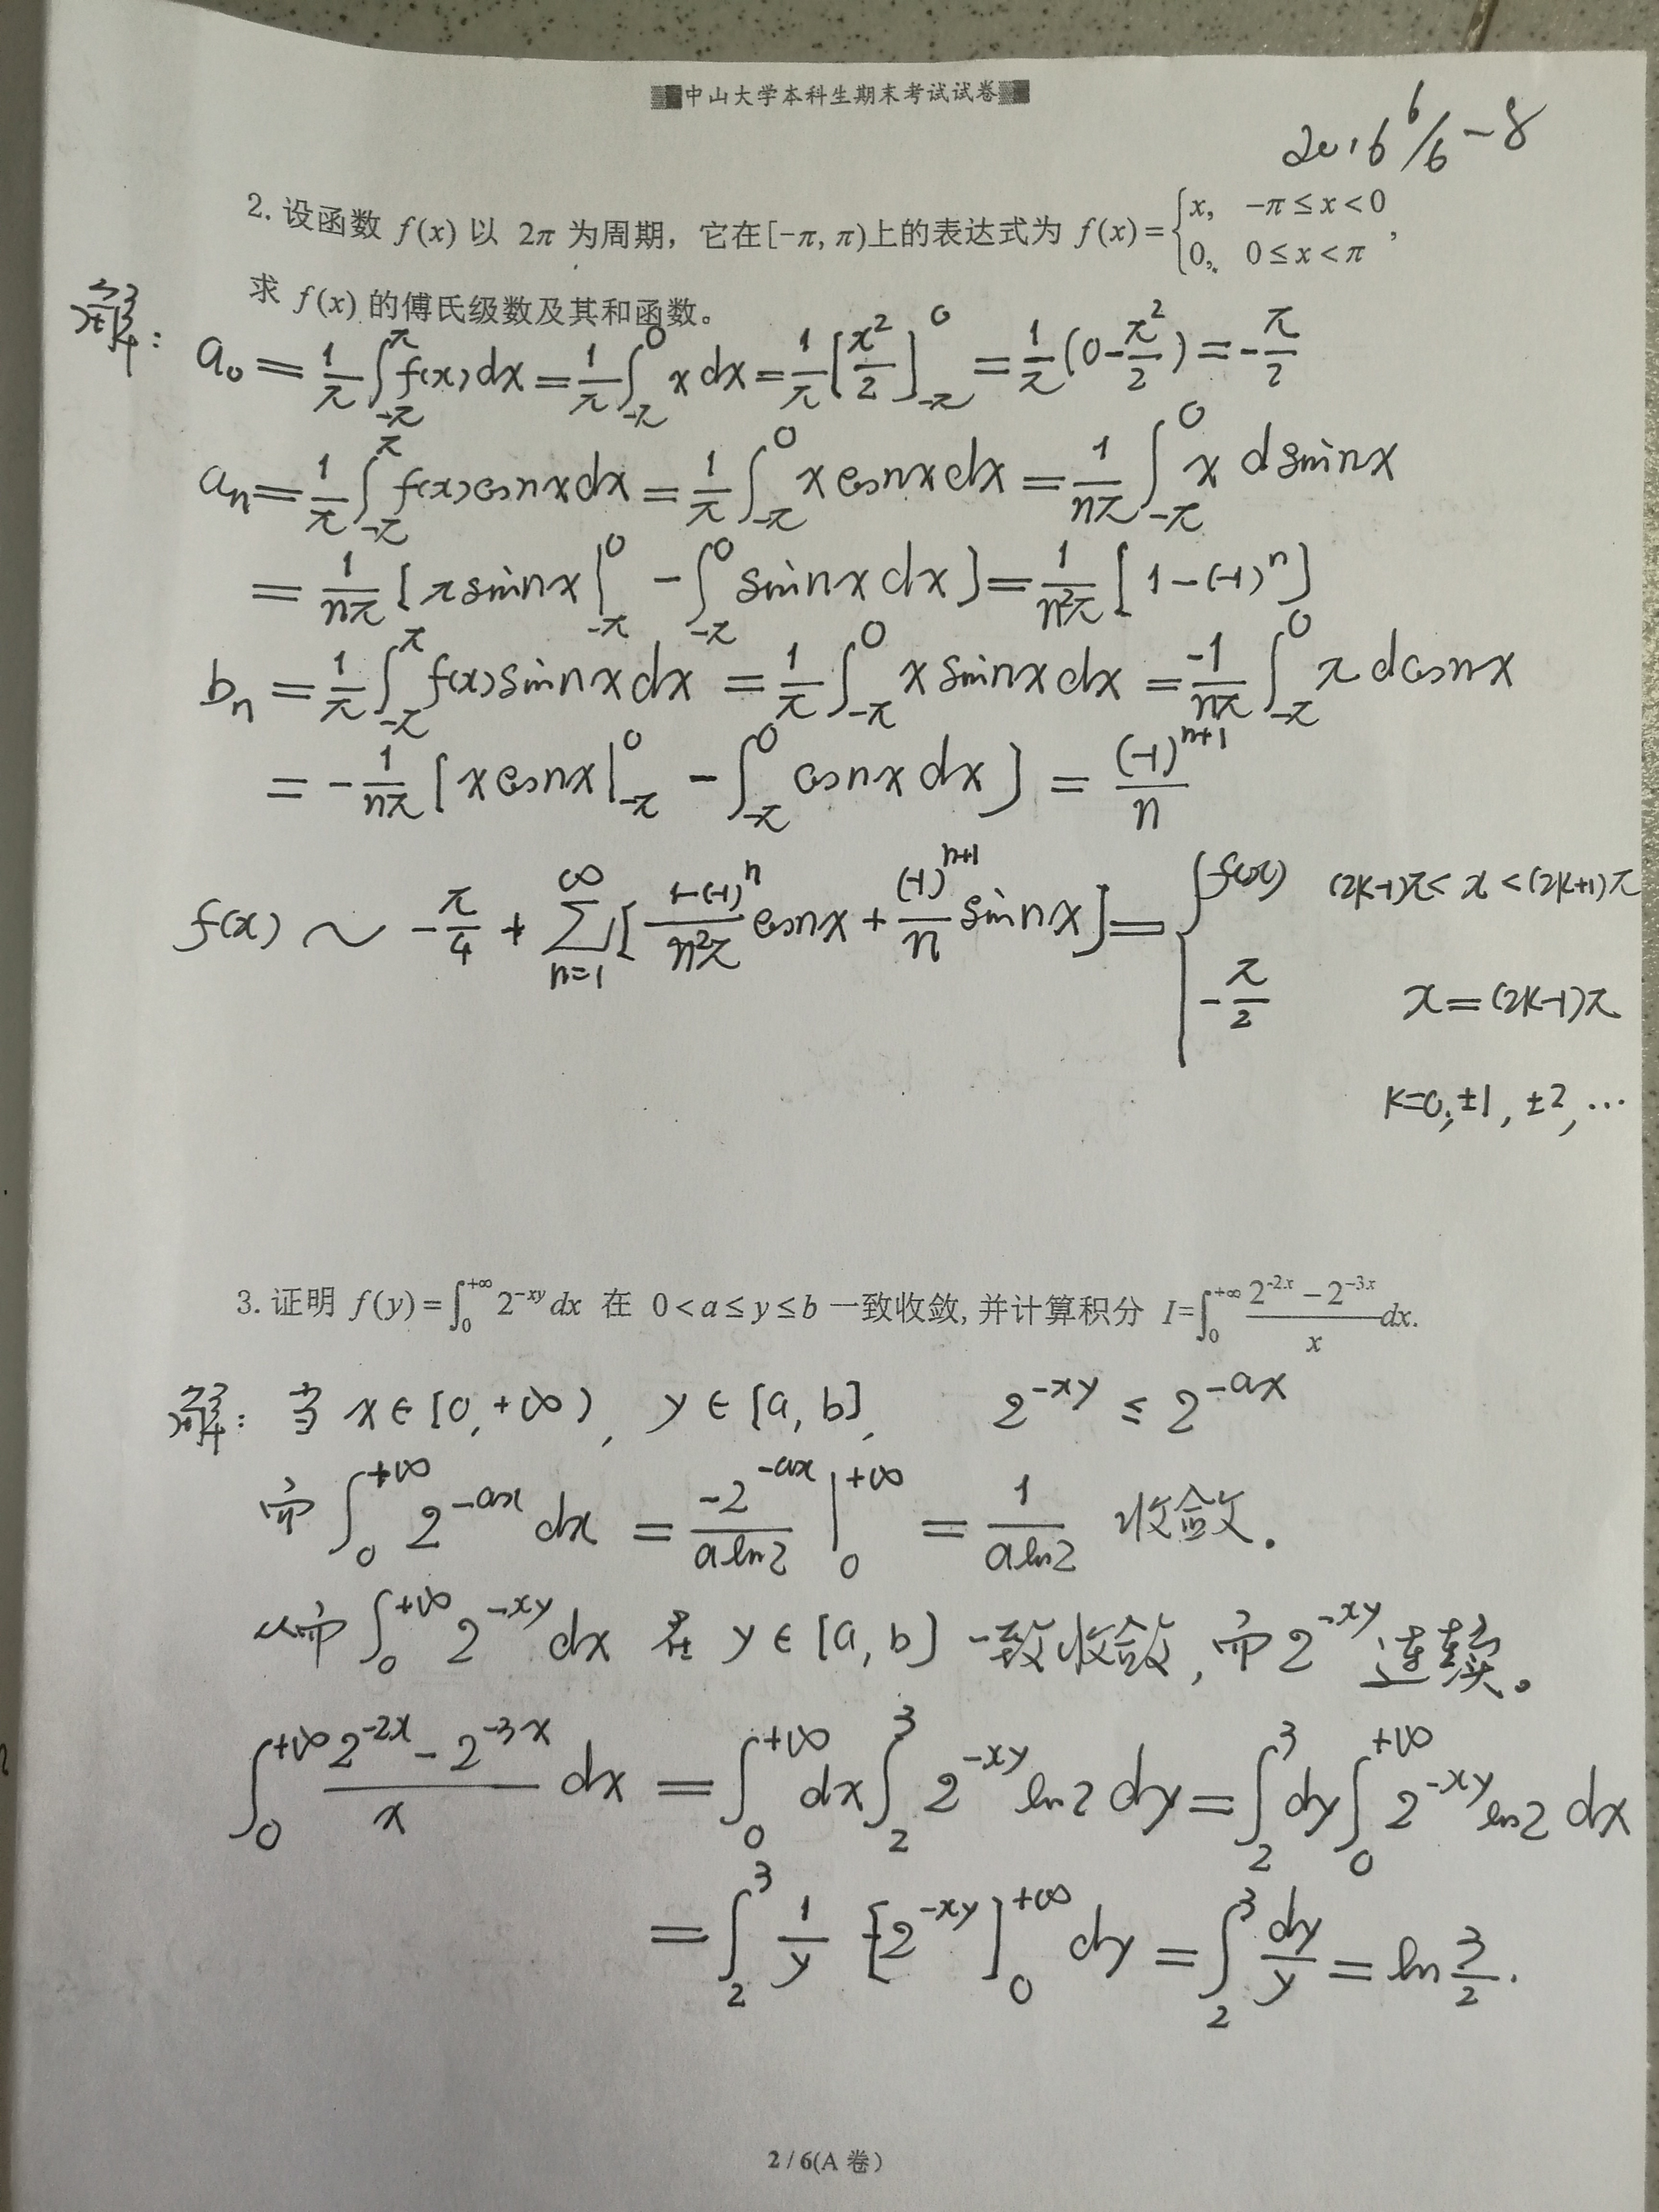 中山大学本科生期末考试试卷
2016 6/6-8
2. 设函数 f(x) 以 2π 为周期，它在[-π, π)上的表达式为 f(x)={x, -π≤x<0; 0, 0≤x<π,
求 f(x) 的傅氏级数及其和函数。
解: a₀ = 1/π ∫_{-π}^{π} f(x)dx = 1/π ∫_{-π}^{0} x dx = 1/π [x²/2]_{-π}^{0} = 1/π (0-π²/2) = -π/2
aₙ = 1/π ∫_{-π}^{π} f(x)cos nx dx = 1/π ∫_{-π}^{0} x cos nx dx = 1/(nπ) ∫_{-π}^{0} x d sin nx
= 1/(nπ) [x sin nx |_{-π}^{0} - ∫_{-π}^{0} sin nx dx] = 1/(n²π) [1-(-1)ⁿ]
bₙ = 1/π ∫_{-π}^{π} f(x) sin nx dx = 1/π ∫_{-π}^{0} x sin nx dx = -1/(nπ) ∫_{-π}^{0} x d cos nx
= -1/(nπ) [x cos nx |_{-π}^{0} - ∫_{-π}^{0} cos nx dx] = (-1)^{n+1}/n
f(x) ~ -π/4 + ∑_{n=1}^{∞} [(1-(-1)ⁿ)/(n²π) cos nx + (-1)^{n+1}/n sin nx] = { f(x) (2k-1)π < x < (2k+1)π
-π/2 x = (2k-1)π
k=0, ±1, ±2, …
3. 证明 f(y)=∫_{0}^{+∞} 2^{-xy} dx 在 0<a≤y≤b 一致收敛, 并计算积分 I=∫_{0}^{+∞} (2^{-2x}-2^{-3x})/x dx.
解: 当 x∈[0,+∞), y∈[a,b], 2^{-xy} ≤ 2^{-ax}
而 ∫_{0}^{+∞} 2^{-ax} dx = -2^{-ax}/(a ln2) |_{0}^{+∞} = 1/(a ln2) 收敛.
从而 ∫_{0}^{+∞} 2^{-xy} dx 在 y∈[a,b] 一致收敛, 而 2^{-xy} 连续。
∫_{0}^{+∞} (2^{-2x}-2^{-3x})/x dx = ∫_{0}^{+∞} dx ∫_{2}^{3} 2^{-xy} ln2 dy = ∫_{2}^{3} dy ∫_{0}^{+∞} 2^{-xy} ln2 dx
= ∫_{2}^{3} 1/y [-2^{-xy}]_{0}^{+∞} dy = ∫_{2}^{3} dy/y = ln 3/2.
2 / 6(A 卷)